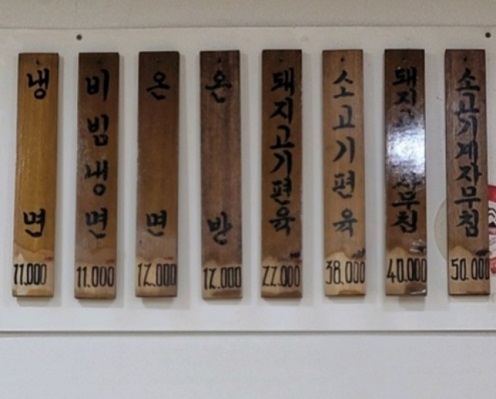 냉면
11.000
비빔냉면
11.000
온면
12.000
온반
12.000
돼지고기편육
22.000
소고기편육
38.000
돼지고 자무침
40.000
소고기겨자무침
50.000